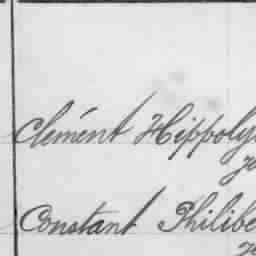 Clément Hippoly
Constant Philibe